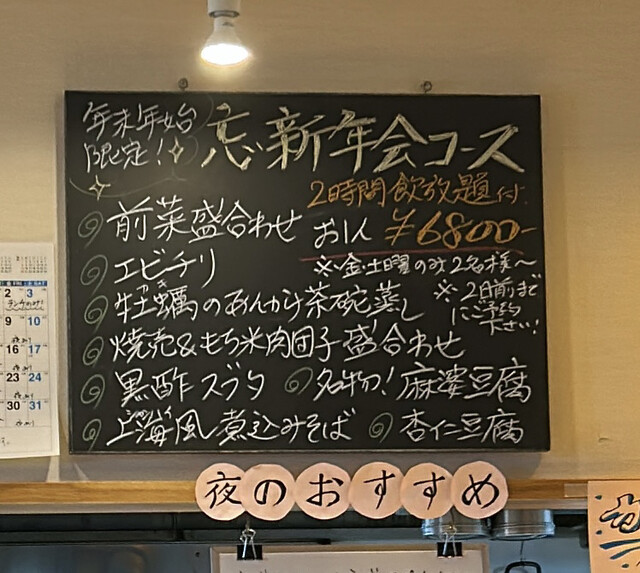 年末年始
限定!
忘新年会コース
2時間飲放題付
前菜盛合わせ
お1人 ¥6800-
※金・土曜のみ2名様~
エビチリ
※2日前まで
にご予約
下さい!
牡蠣のあんかけ茶碗蒸し
焼売&もち米肉団子盛合わせ
黒酢スブタ
名物!麻婆豆腐
上海風煮込みそば
杏仁豆腐
夜のおすすめ
2 3
9 10
16 17
23 24
30 31